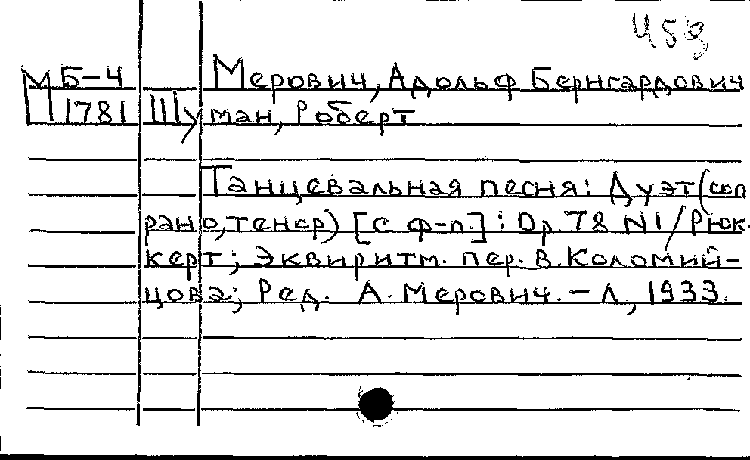 458
М Б-4 Мерович, Адольф Бернгардович
П 1781 Шуман, Роберт
Танцевальная песня: Дуэт (соп
рано, тенор) [с ф-п.]: Op 78 N1 / Рюк-
керт; Эквиритм. пер. В. Коломий-
цова; Ред. А. Мерович. – Л, 1933.